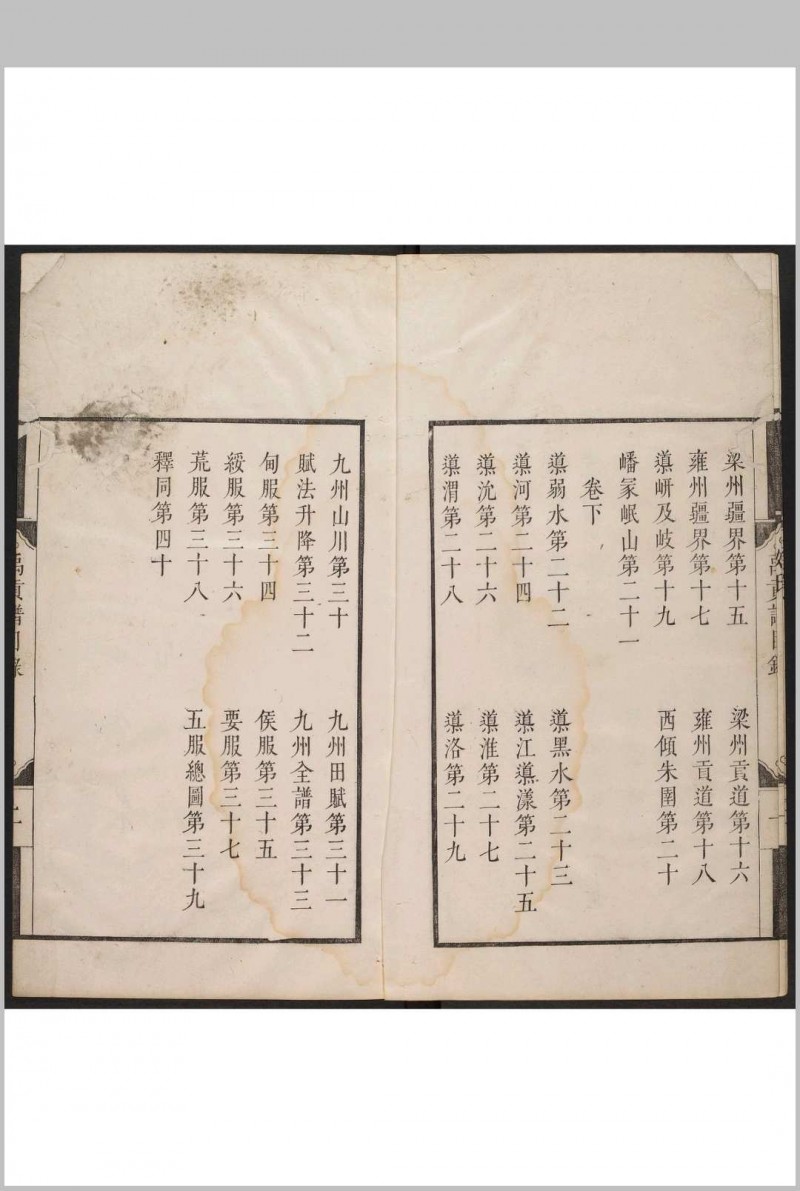 梁州疆界第十五　梁州貢道第十六
雍州疆界第十七　雍州貢道第十八
導岍及岐第十九　西傾朱圉第二十
嶓冢岷山第二十一
卷下
導弱水第二十二　導黑水第二十三
導河第二十四　導江導漾第二十五
導沇第二十六　導淮第二十七
導渭第二十八　導洛第二十九
九州山川第三十　九州田賦第三十一
賦法升降第三十二　九州全譜第三十三
甸服第三十四　侯服第三十五
綏服第三十六　要服第三十七
荒服第三十八　五服總圖第三十九
釋同第四十
禹貢譜目錄